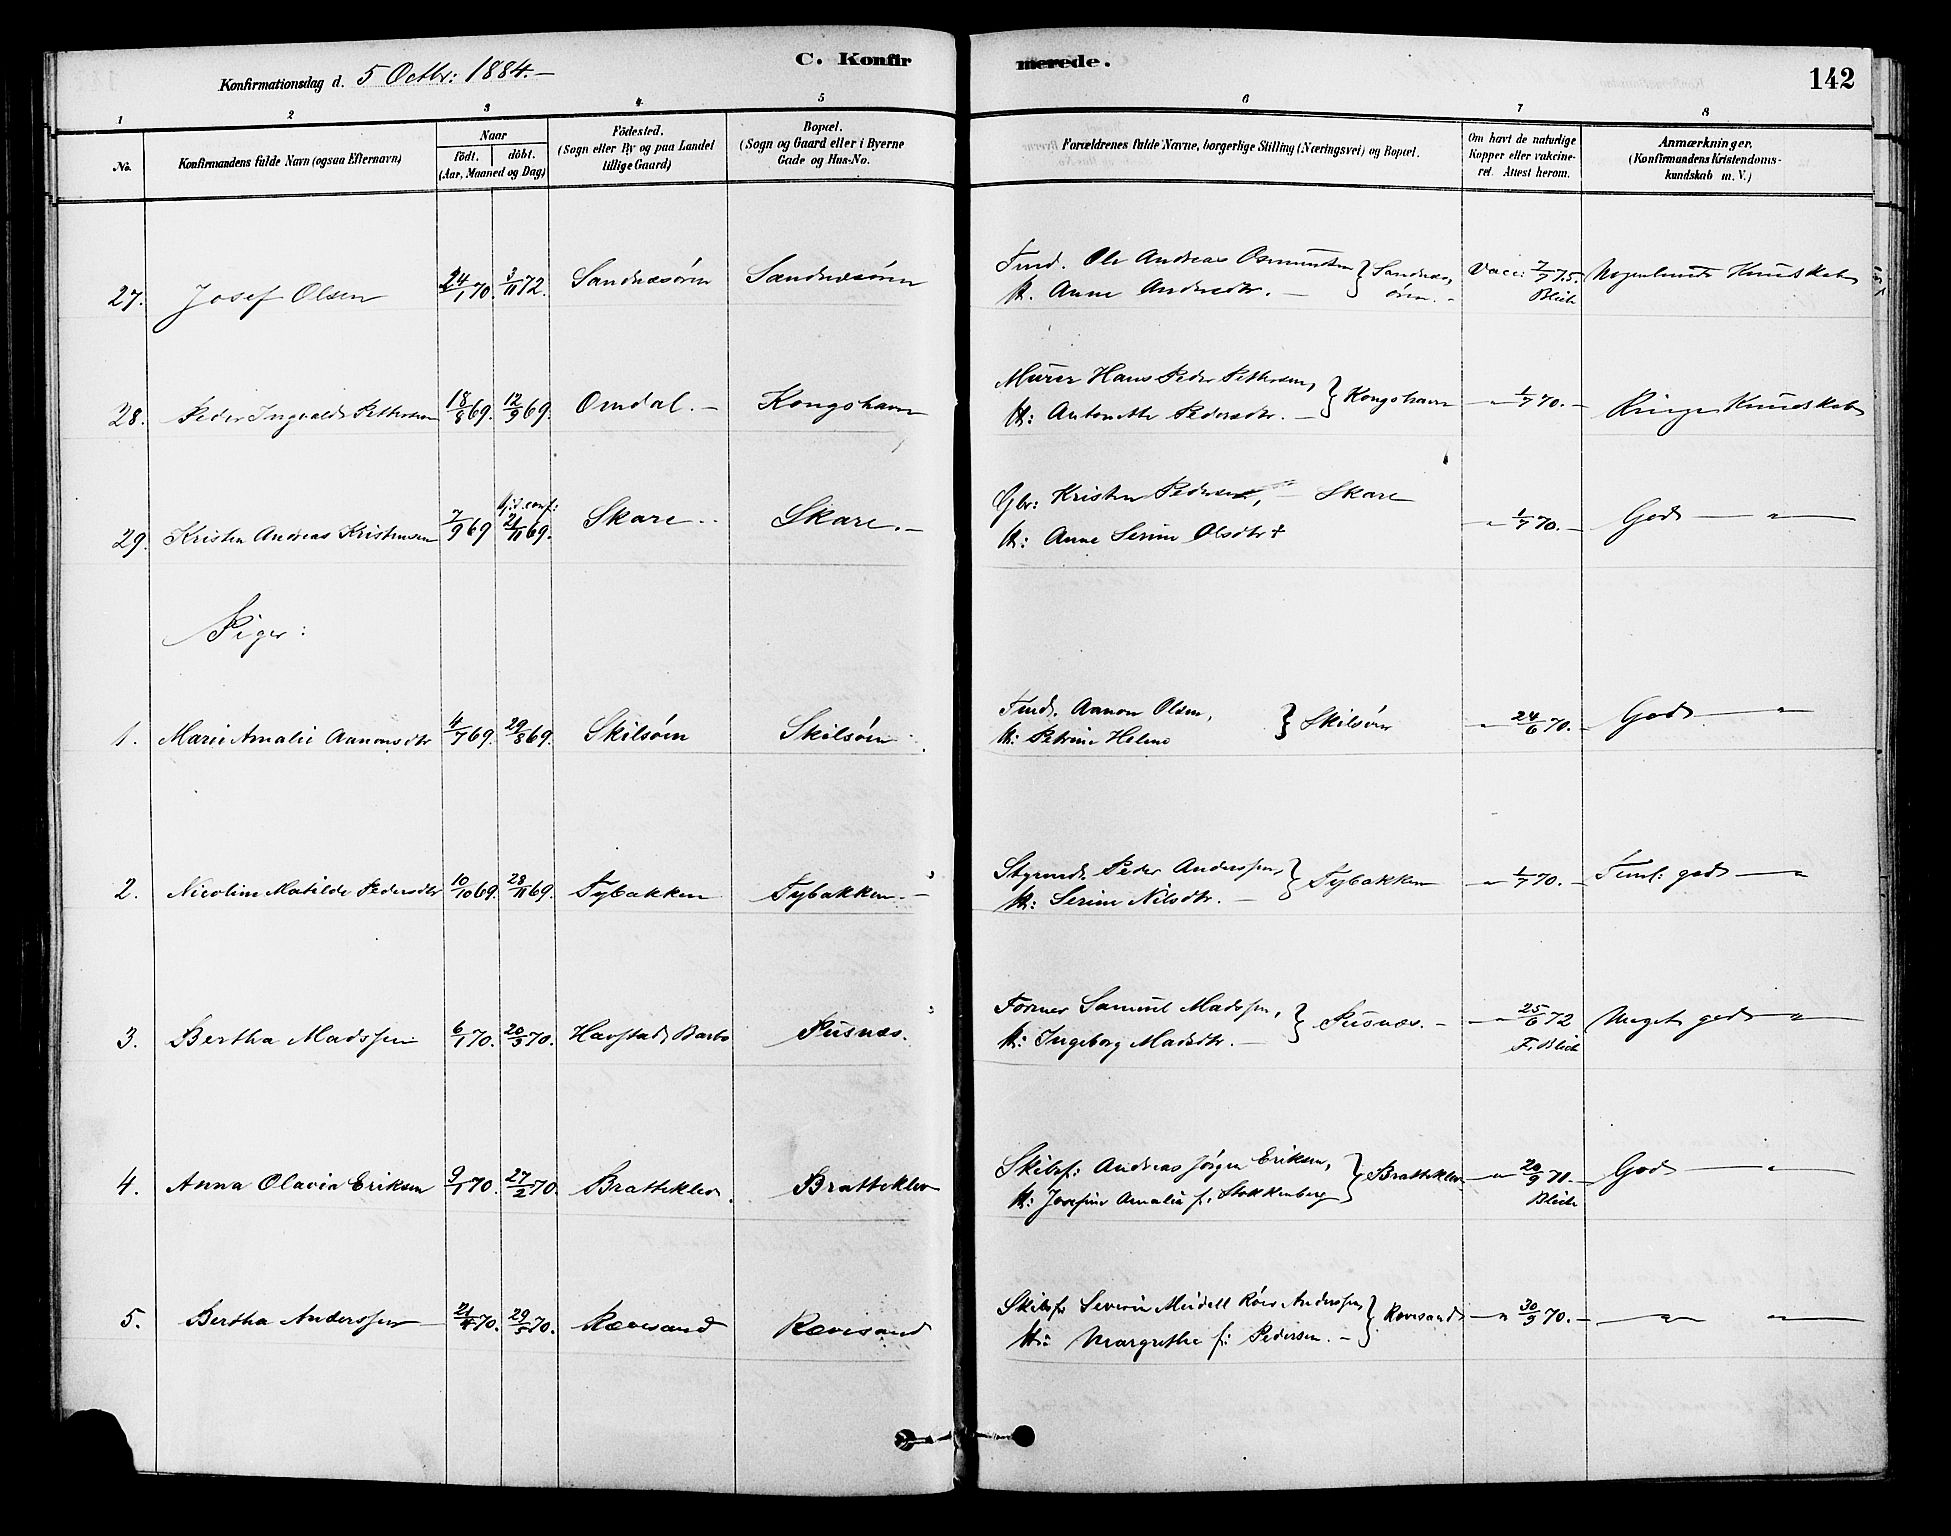 Konfirmationsdag d. 5 Octbr: 1884.–
C. Konfirmerede.
142
1 2 3 4 5 6 7 8
No. Konfirmandens fulde Navn (ogsaa Efternavn) Naar födt. döbt. (Aar, Maaned og Dag) Födested. (Sogn eller By og paa Landet tillige Gaard) Bopæl. (Sogn og Gaard eller i Byerne Gade og Hus-No. Forældrenes fulde Navne, borgerlige Stilling (Næringsvei) og Bopæl. Om havt de naturlige Kopper eller vakcineret. Attest herom. Anmærkninger. (Konfirmandens Kristendomskundskab m. V.)
27. Josef Olsen 24/1 70. 3/11 72. Sandnæsören Sandnæsören Ole Andreas Osmundsen } Sandnæs-
H. Anne Andersdtr. – ören. – Vacc: 7/7 75. Blich Nogenlunde Kundskab
28. Peder Ingvald Pettersen 18/8 69. 12/9 69. Omdal. – Kongshavn Murer Hans Peder Pettersen, } Kongshavn
H: Antonette Pedersdtr. – – " 1/7 70. – Ringe Kundskab
29. Kristen Andreas Kristensen 7/9 69 hjd. conf: 21/11 69. Skare – Skare. – Gbr: Kristen Pedersen, – Skare
H: Anne Serine Olsdtr † – " 1/7 70. – God – " –
Piger:
1. Marie Amalie Aanonsdtr 4/7 69. 29/8 69. Skilsöen Skilsöen Aanon Olsen, } Skilsöen
H: Petrine Helene – " 24/6 70. – God – " –
2. Nicoline Matilde Pedersdtr 10/10 69. 28/11 69. Tybakken Tybakken. – Styrmd. Peder Anderssen, } Tybakken
H: Serine Nilsdtr. – – " 1/7 70. – Teml: god – " –
3. Bertha Madssen 6/1 70. 20/3 70. Havstad, Barbo Pusnæs. Former Samuel Madssen, } Pusnæs. –
H: Ingeborg Madsdtr. – – " 25/6 72 F. Blich Meget god – " –
4. Anna Olavia Eriksen 9/1 70. 27/2 70. Bratteklev. Bratteklev Skibsf: Andreas Jörgen Eriksen, } Bratteklev
H: Josefine Amalia f. Stokkenberg – " 20/9 71. – Blich God – " –
5. Bertha Anderssen 21/4 70. 29/5 70. Rævesand Rævesand Skibsf Severin Meidell Röer Anderssen } Rævesand
H: Margrethe f: Pedersen. – – " 30/9 70. – – " – – " –